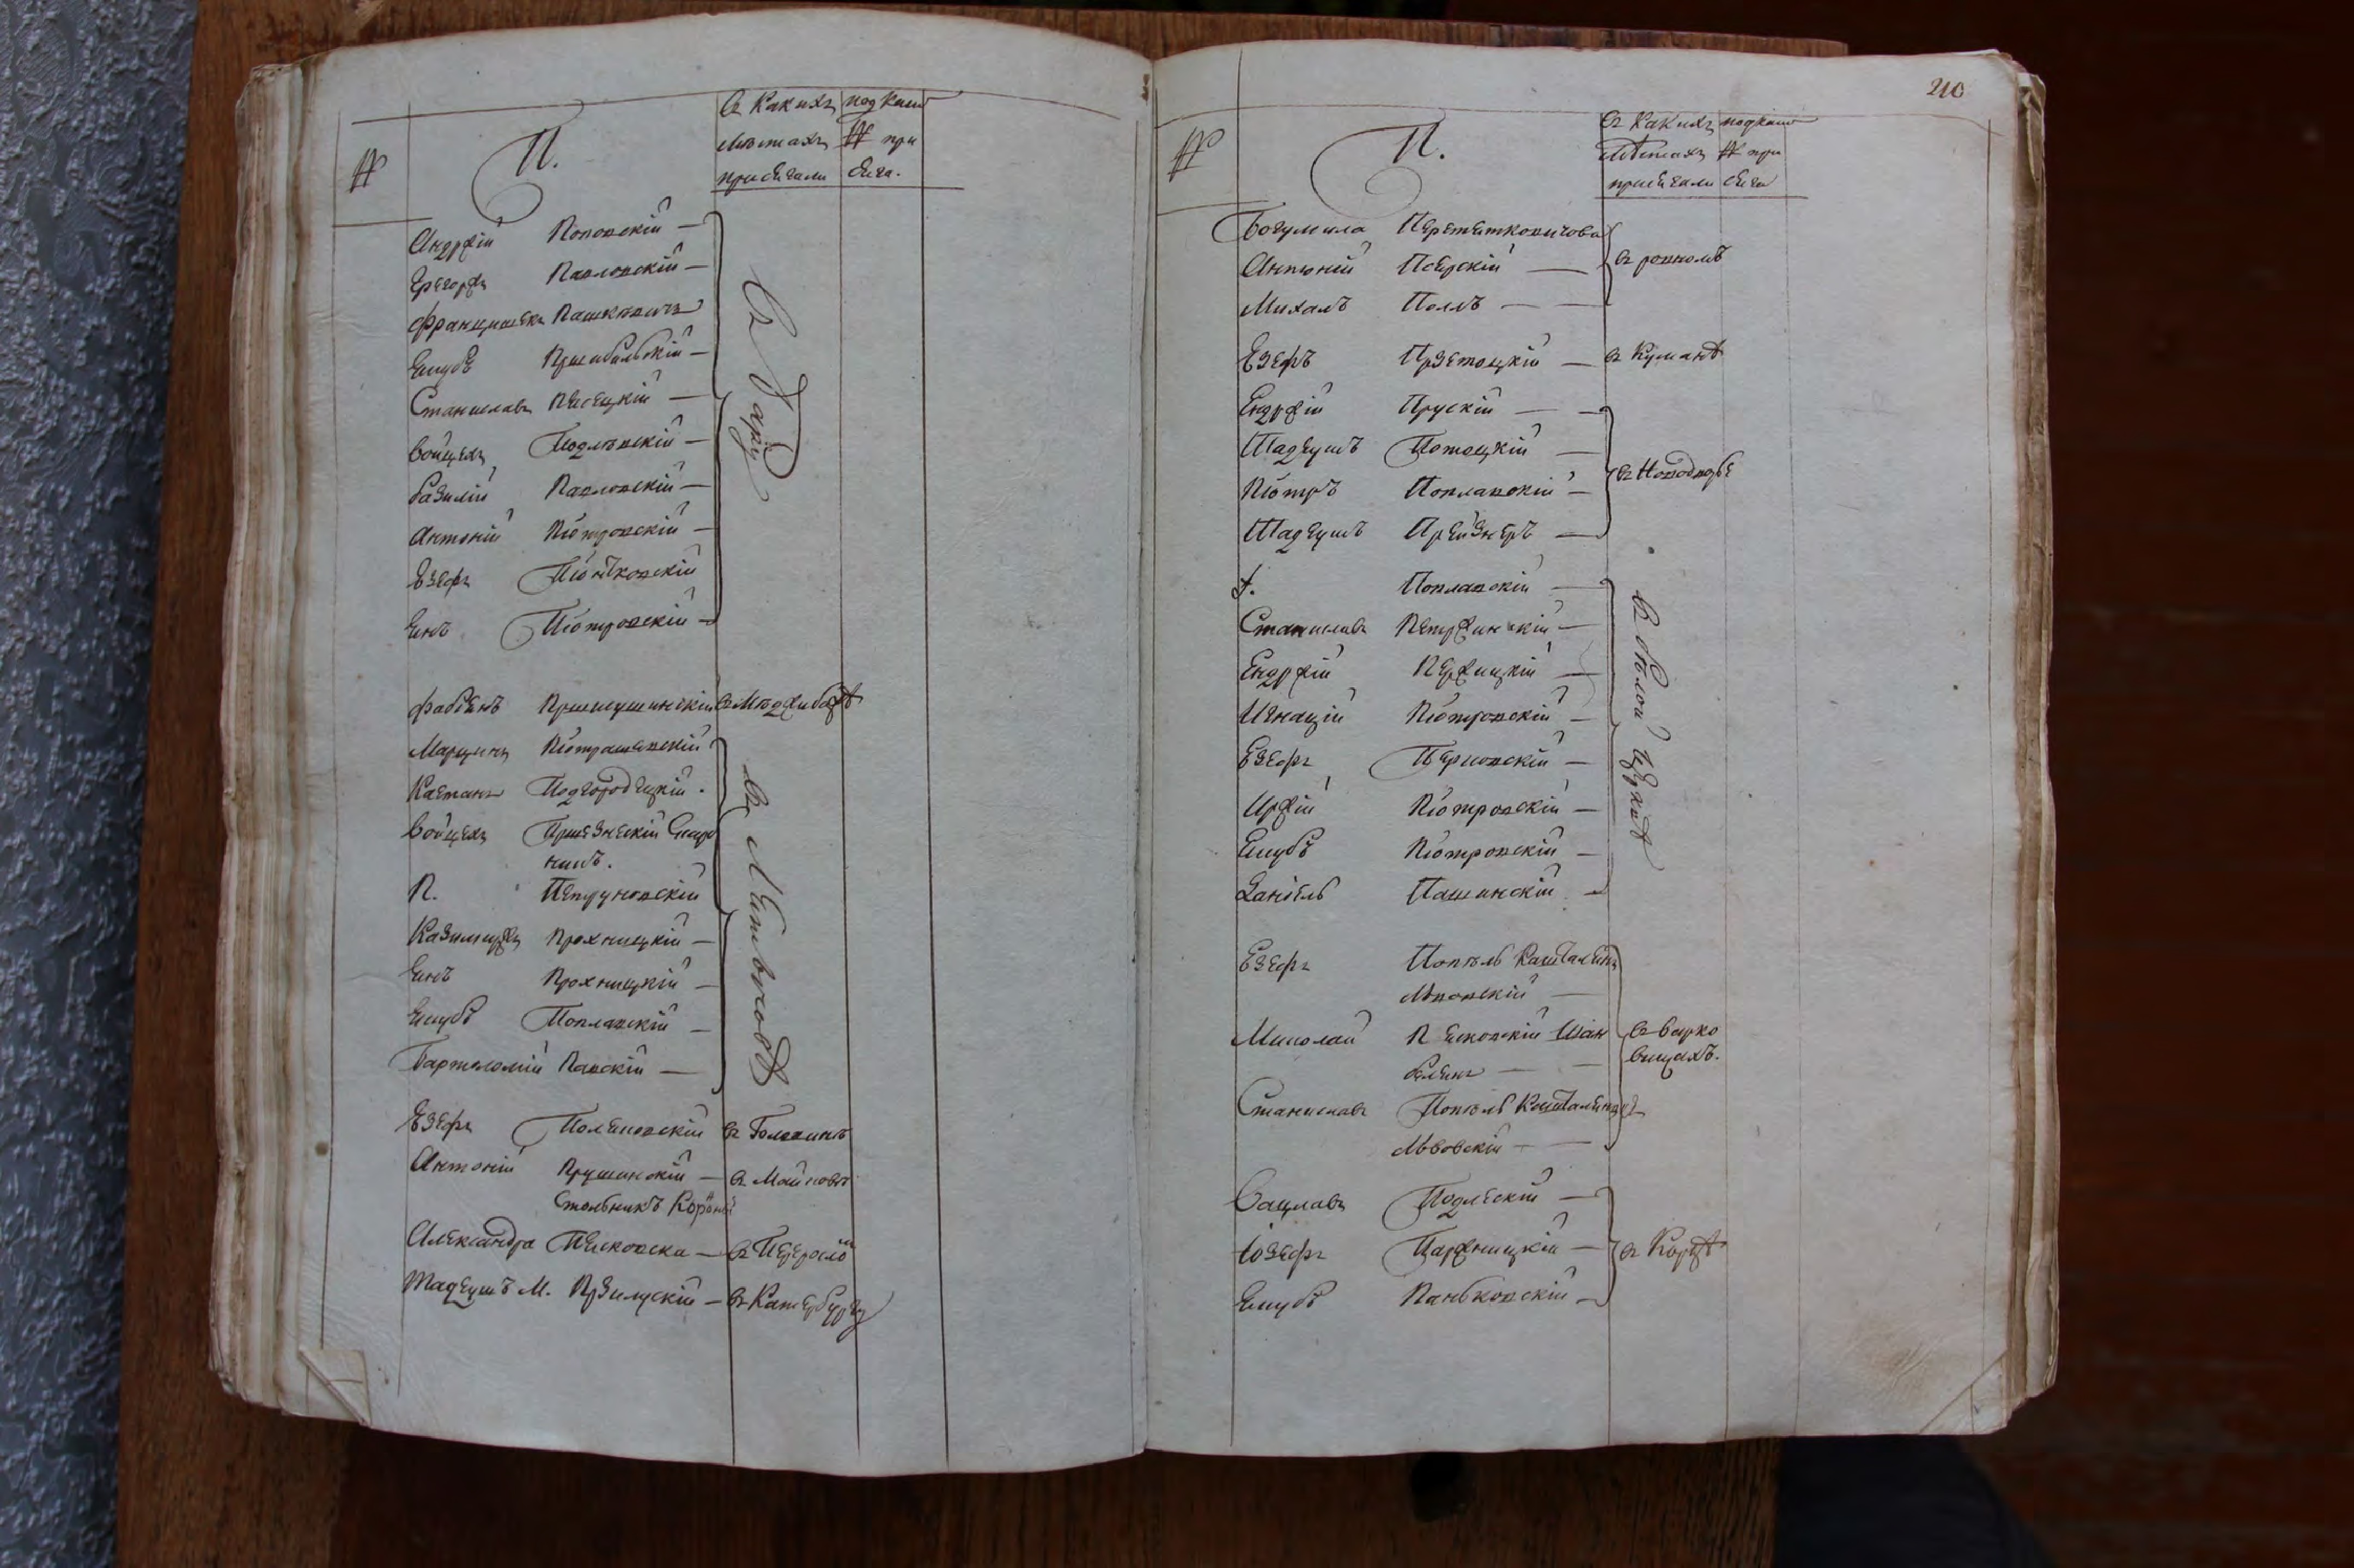 №
П.
въ какихъ
мѣстахъ
присягали
под каим
№ при
сяга.
Андржій Поповскій —
Гржегоржъ Павловскій —
Францишекъ Пашкевичъ
Якубъ Пршибыльскій —
Станиславъ Пясецкій —
Войцехъ Подлевскій —
Базилій Павловскій —
Антоній Піотровскій —
Езефъ Піонтковскій
Янъ Піотровскій —
въ Барѣ
Фабіанъ Пршилушинскій въ Мѣджибожѣ
Марцинъ Піотрашевскій
Каетанъ Подгородецкій.
Войцехъ
П. Петруновскій
Казимиржъ Прохницкій —
Янъ Прохницкій —
Якубъ Поплавскій —
Бартоломій Павскій —
въ Летычовѣ
Езефъ Поляновскій въ Головинѣ
Антоній Прушинскій — въ
Стольникъ Корон
Александра Песковска — въ
Тадеушъ М. Пржилускій — въ Катербургу
210
№
П.
въ какихъ
мѣстахъ
присягали
под каим
№ при
сяга
Богумила Перетятковичова
Антоній Псерскій —
Михалъ Поллъ — —
въ ровномъ
Езефъ Прзетоцкій — въ Куманѣ
Ендржій Прускій — —
Тадеушъ Потоцкій —
Піотръ Поплавскій —
Тадеушъ Прейзнеръ —
въ Новодворѣ
Поплавскій —
Станиславъ Петржинскій —
Ендржій Пержицкій —
Игнацій Піотровскій —
Езефъ Перловскій —
Иржій Піотровскій —
Якубъ Піотровскій —
Даніель Пашинскій —
въ бѣлой Церквѣ
Езефъ Попель Каштелянъ
Львовскій —
Миколай Песковскій Шам
белянъ — —
Станиславъ Попель Каштелянъ
Львовскій — —
въ Варко
вицахъ.
Вацлавъ Подлескій —
Іозефъ Паржницкій —
Якубъ Паньковскій —
въ Корцѣ